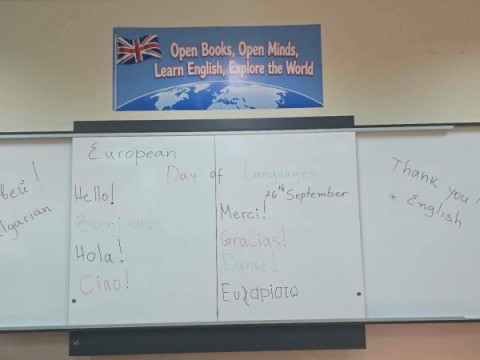 Open Books, Open Minds,
Learn English, Explore the World
European
Day of Languages
26th September
Hello!
Bonjour!
Hola!
Ciao!
Merci!
Gracias!
Danke!
Ευχαριστω
Thank you!
in English